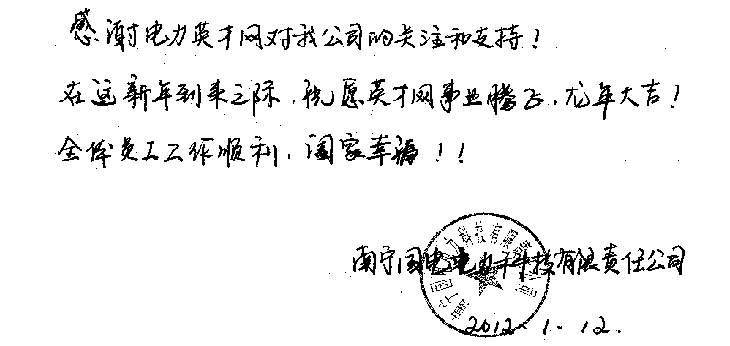 感谢电力英才网对我公司的关注和支持！
在这新年到来之际，祝愿英才网事业腾飞，龙年大吉！
全体员工工作顺利，阖家幸福！！
南宁国电电力科技有限责任公司
2012.1.12.